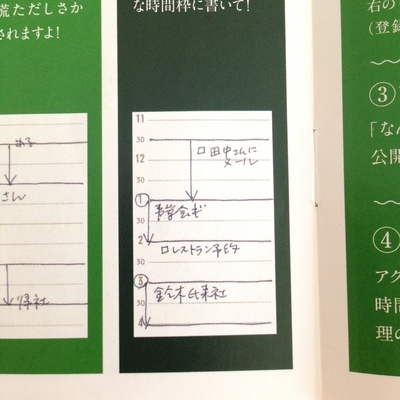 慌ただしさか
されますよ!
める
さん
帰社
な時間枠に書いて!
11
30
12
30
1
30
2
30
3
30
4
□田中さんに
メール
予算会議
□レストラン予約
鈴木氏来社
右の
(登録
③
「なん
公開
④
アク
時間
理の